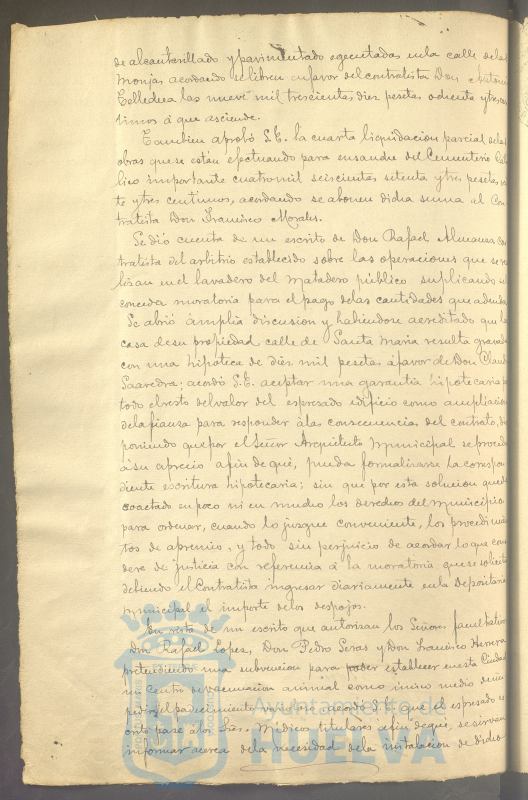 de alcantarillado y pavimentado egecutadas en la calle de las
Monjas acordando se libren en favor del contratista Don Antonio
las nueve mil trescientas diez pesetas ochenta y tres cen
timos á que asciende.
Tambien aprobó S.E. la cuarta liquidacion parcial de las
obras que se están efectuando para ensanche del Cementerio Cató
lico importante cuatro mil seiscientas setenta y tres pesetas
te y tres centimos, acordando se abonen dicha suma al Con
tratista Don Francisco Morales.
Se dió cuenta de un escrito de Don Rafael Almansa con
tratista del arbitrio establecido sobre las operaciones que se rea
lizan en el lavadero del Matadero público suplicando se le
conceda moratoria para el pago de las cantidades que adeuda
Se abrió ámplia discusion y habiendose acreditado que la
casa de su propiedad calle de Santa Maria resulta gravada
con una hipoteca de diez mil pesetas á favor de Don Claudio
Saavedra; acordó S.E. aceptar una garantia hipotecaria
todo el resto del valor del espresado edificio como ampliacion
de la fianza para responder á las consecuencias del contrato, dis
poniendo que por el Señor Arquitecto Municipal se proceda
á su aprecio afin de que, pueda formalizarse la correspon
diente escritura hipotecaria; sin que por esta solucion quede
coactado en poco ni en mucho los derechos del municipio
para ordenar, cuando lo juzgue conveniente, los procedimien
tos de apremio, y todo sin perjuicio de acordar lo que con
dere de justicia con referencia á la moratoria que se solicita
debiendo el Contratista ingresar diariamente en la Depositaria
Municipal el importe de los despojos.
En vista de un escrito que autorizan los Señores facultativos
Don Rafael Lopez, Don Pedro Seras y Don Francisco Herrera
pretendiendo una subvencion para poder establecer en esta Ciudad
un Centro de vacunacion animal como único medio de im
pedir el padecimiento varioloso acordó S.E. que el espresado es
crito pase á los Sres. Médicos titulares afin de que, se sirvan
informar acerca de la necesidad de la instalacion de dicho
Ayuntamiento de
HUELVA